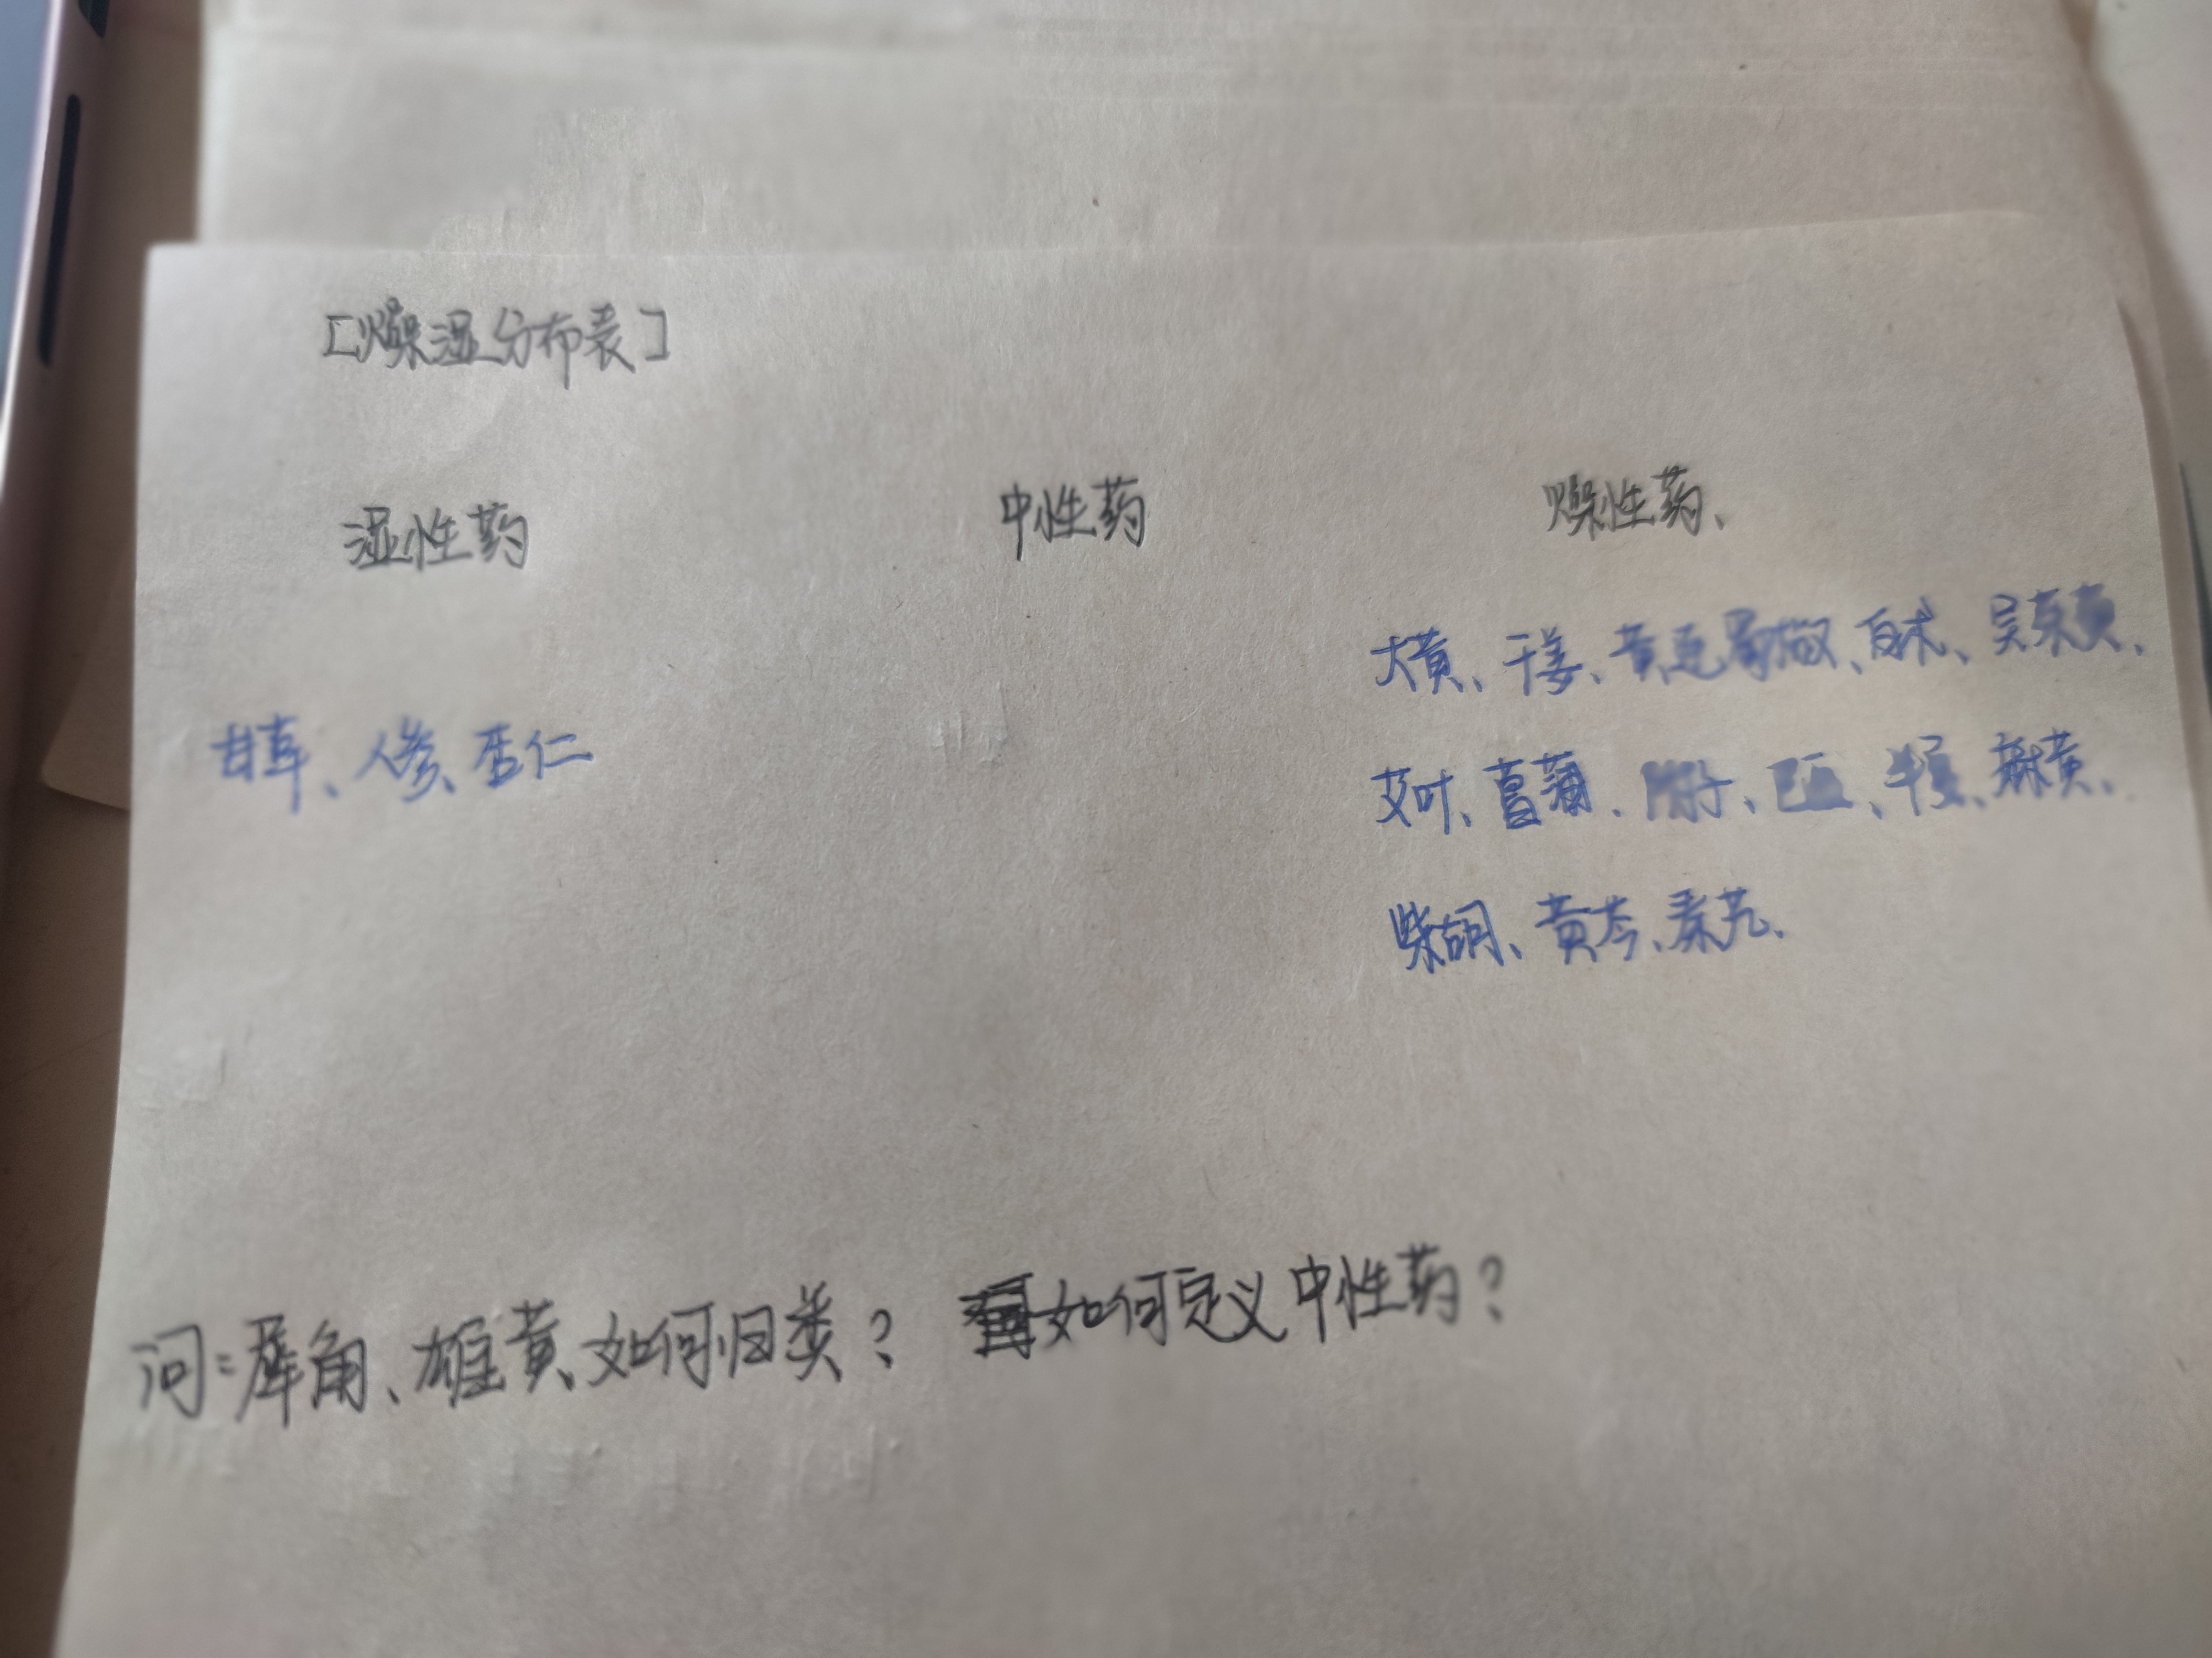 [燥湿分布表]
湿性药 中性药 燥性药、
大黄、干姜、黄连、蜀椒、白术、吴茱萸、
甘草、人参、杏仁
艾叶、菖蒲、附子、巴豆、半夏、麻黄、
柴胡、黄芩、秦艽、
问：犀角、雄黄、如何归类？ 如何定义中性药？